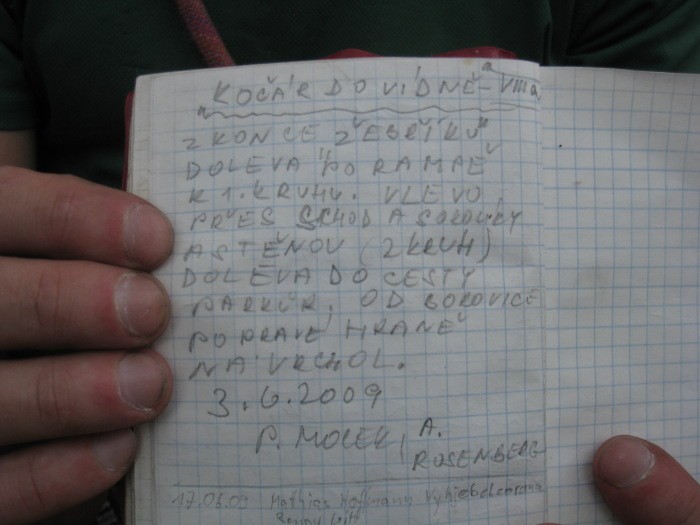 "KOČÁR DO VÍDNĚ" - VIIIa,
Z KONCE ŽEBŘÍKU
DOLEVA PO RAMPĚ
K 1. KRUHU. VLEVO
PŘES SCHOD A SOKOLÍKY
A STĚNOU (2 KRUH)
DOLEVA DO CESTY
PARKUR. OD BOROVICE
PO PRAVÉ HRANĚ
NA VRCHOL.
3.6.2009
P. MOCEK, A.
ROSENBERG
17.06.09 Mathias Hoffmann